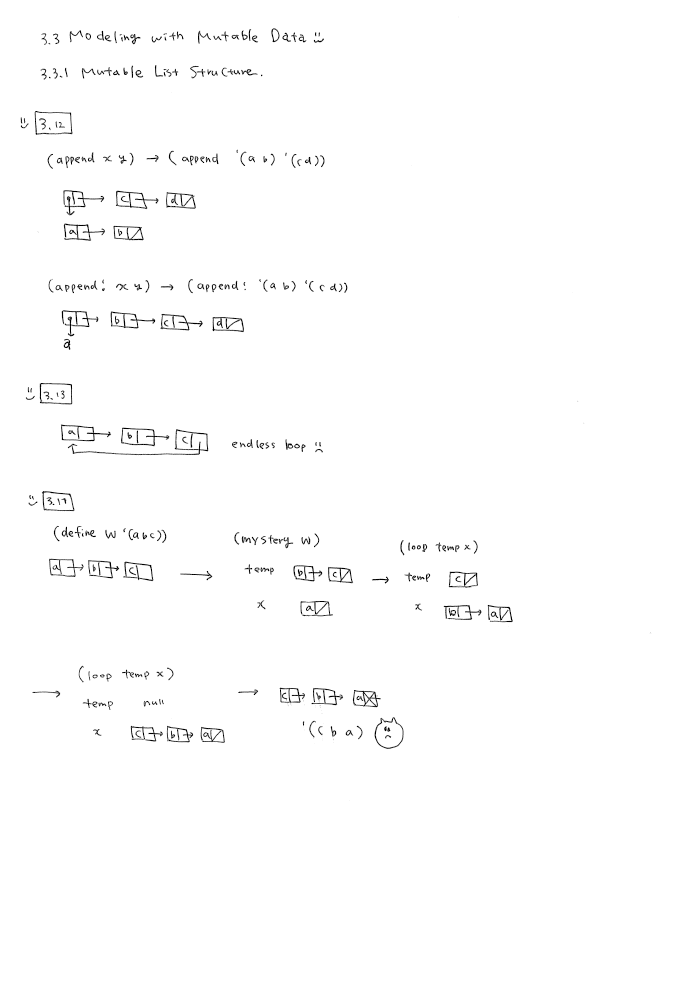 3.3 Modeling with Mutable Data
3.3.1 Mutable List Structure.
3.12
(append x y) → (append '(a b) '(c d))
c d
a b
(append! x y) → (append! '(a b) '(c d))
b c d
a
3.13
a b c endless loop
3.14
(define W '(a b c)) (mystery W) (loop temp x)
a b c → temp b c → temp c
x a x b a
(loop temp x)
→ temp null → c b a
x c b a '(c b a)